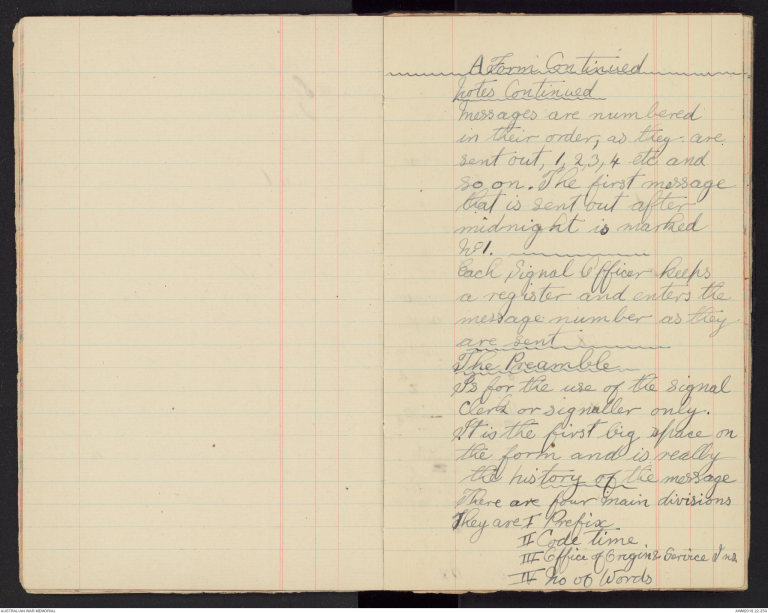 A Form Continued
Notes Continued
Messages are numbered
in their order, as they are
sent out, 1, 2, 3, 4 etc and
so on. The first message
that is sent out after
midnight is marked
No 1.
Each Signal Officer keeps
a register and enters the
message number as they
are sent
The Preamble
Is for the use of the signal
Clerk or signaller only.
It is the first big space on
the form and is really
the history of the message
There are four main divisions
They are I Prefix
II Code time
III Office of Origin & Service
IV No of Words
AUSTRALIAN WAR MEMORIAL